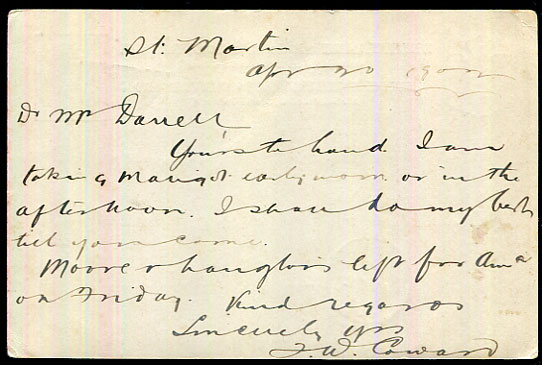 St. Martin
Apr 20 1902
Dr Mr Darrell
Yours to hand. I am
taking Marigot early morn or in the
afternoon. I shall do my best
till you come.
Moore & left for Ama
on Friday. Kind regards
Sincerely yrs
W. Coward